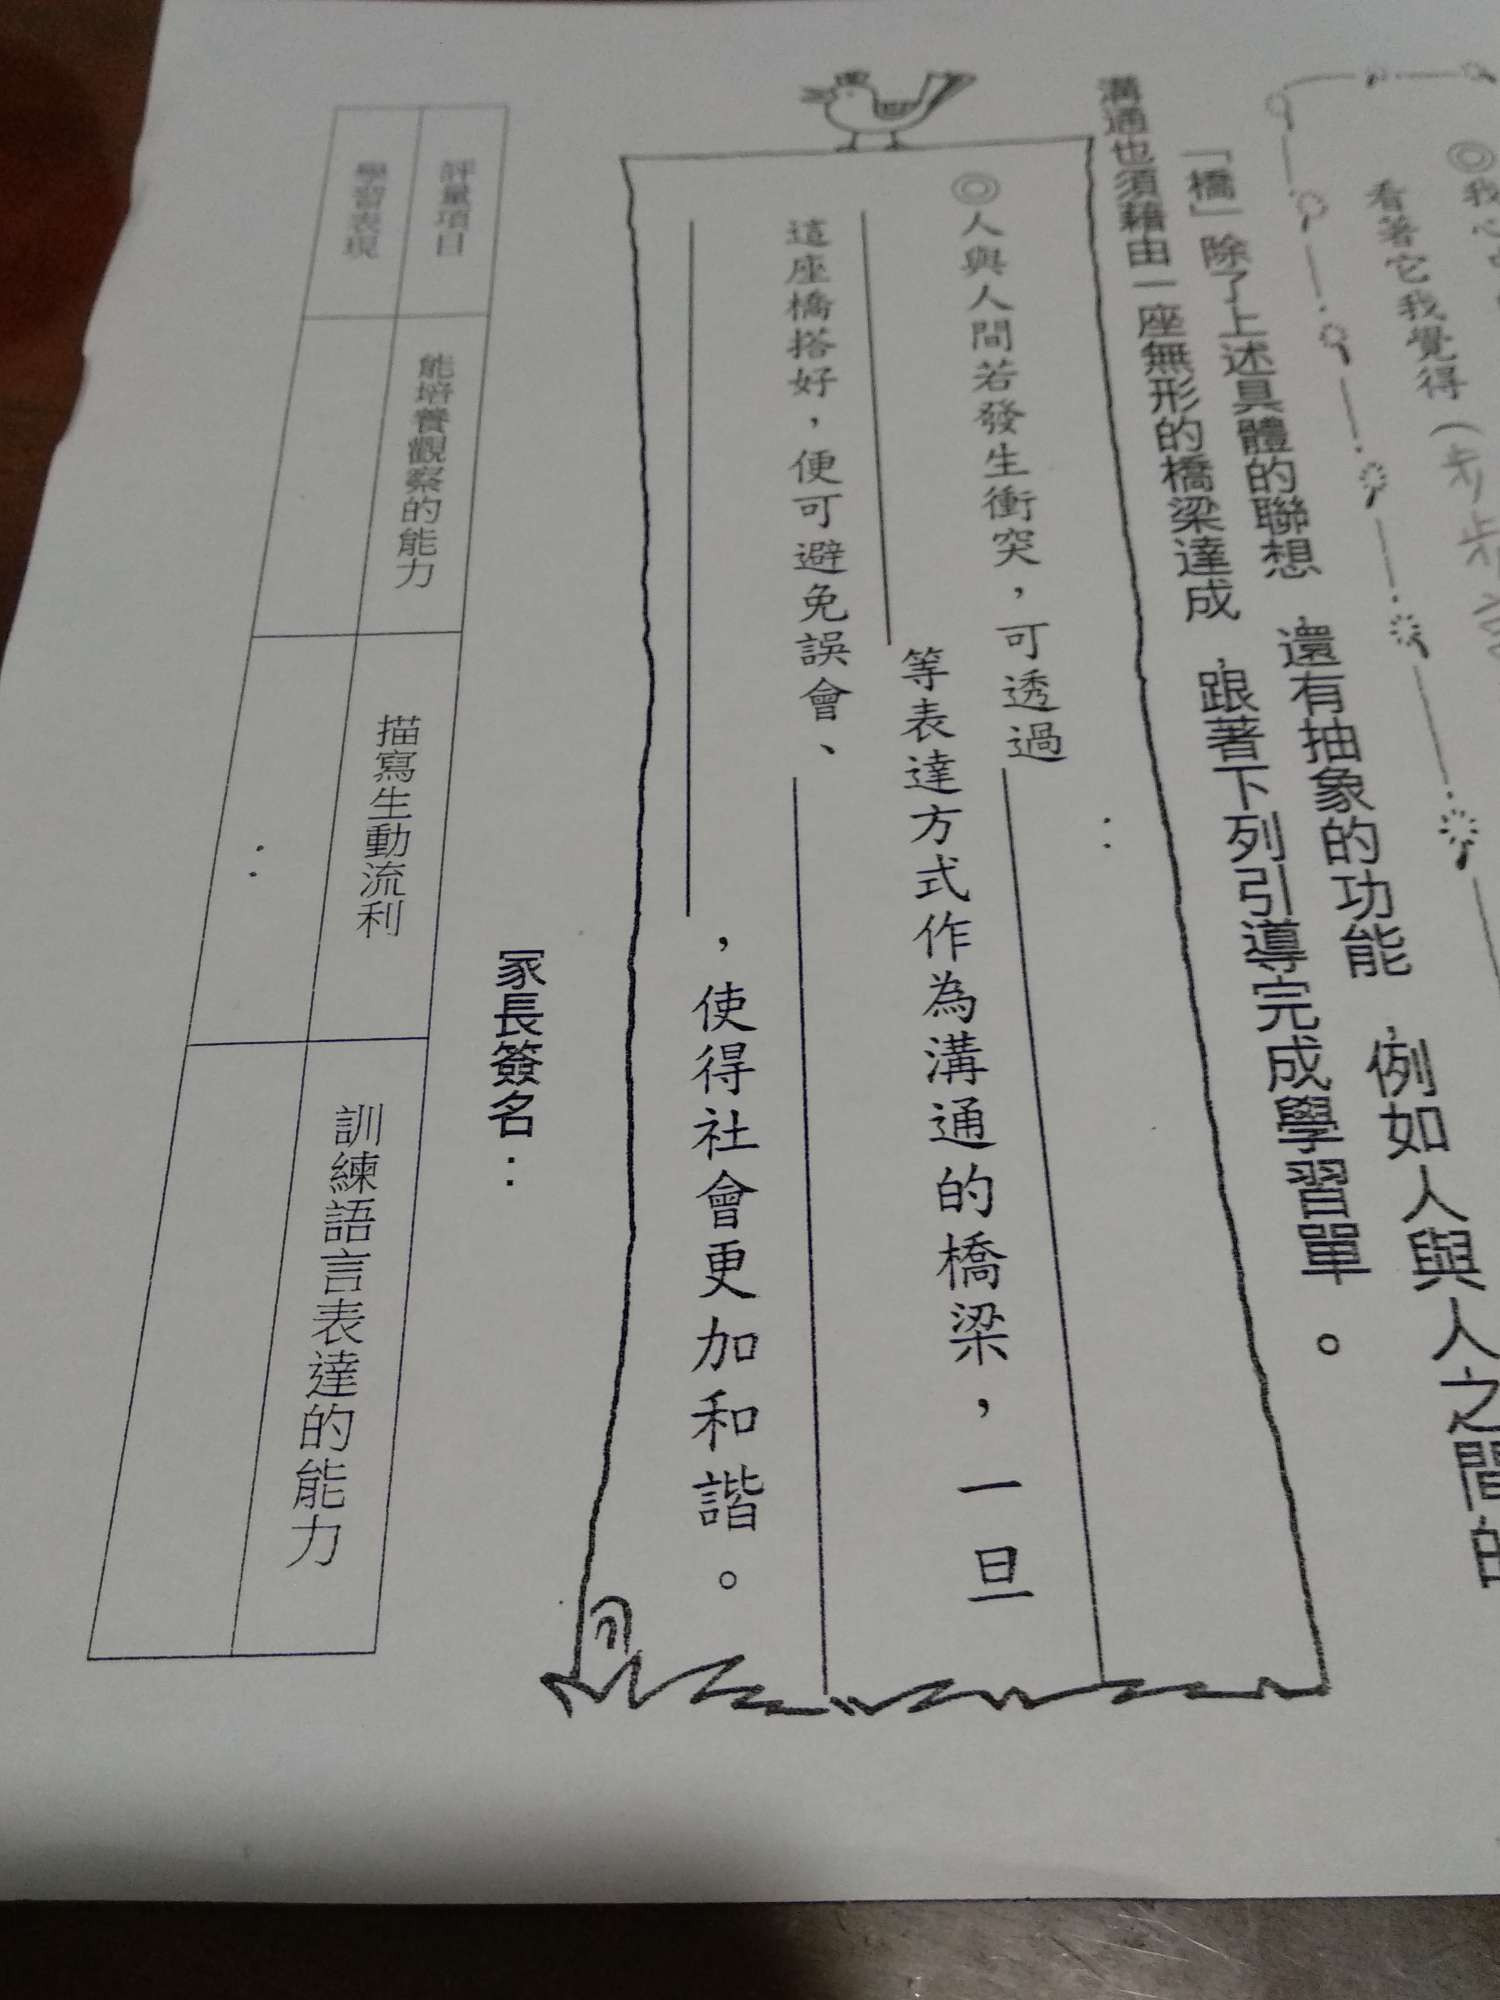 ◎我心
看著它我覺得（
「橋」除了上述具體的聯想，還有抽象的功能，例如人與人之間的
溝通也須藉由一座無形的橋梁達成，跟著下列引導完成學習單。
◎人與人間若發生衝突，可透過
等表達方式作為溝通的橋梁，一旦
這座橋搭好，便可避免誤會、
，使得社會更加和諧。
家長簽名：
評量項目 能培養觀察的能力 描寫生動流利 訓練語言表達的能力
學習表現